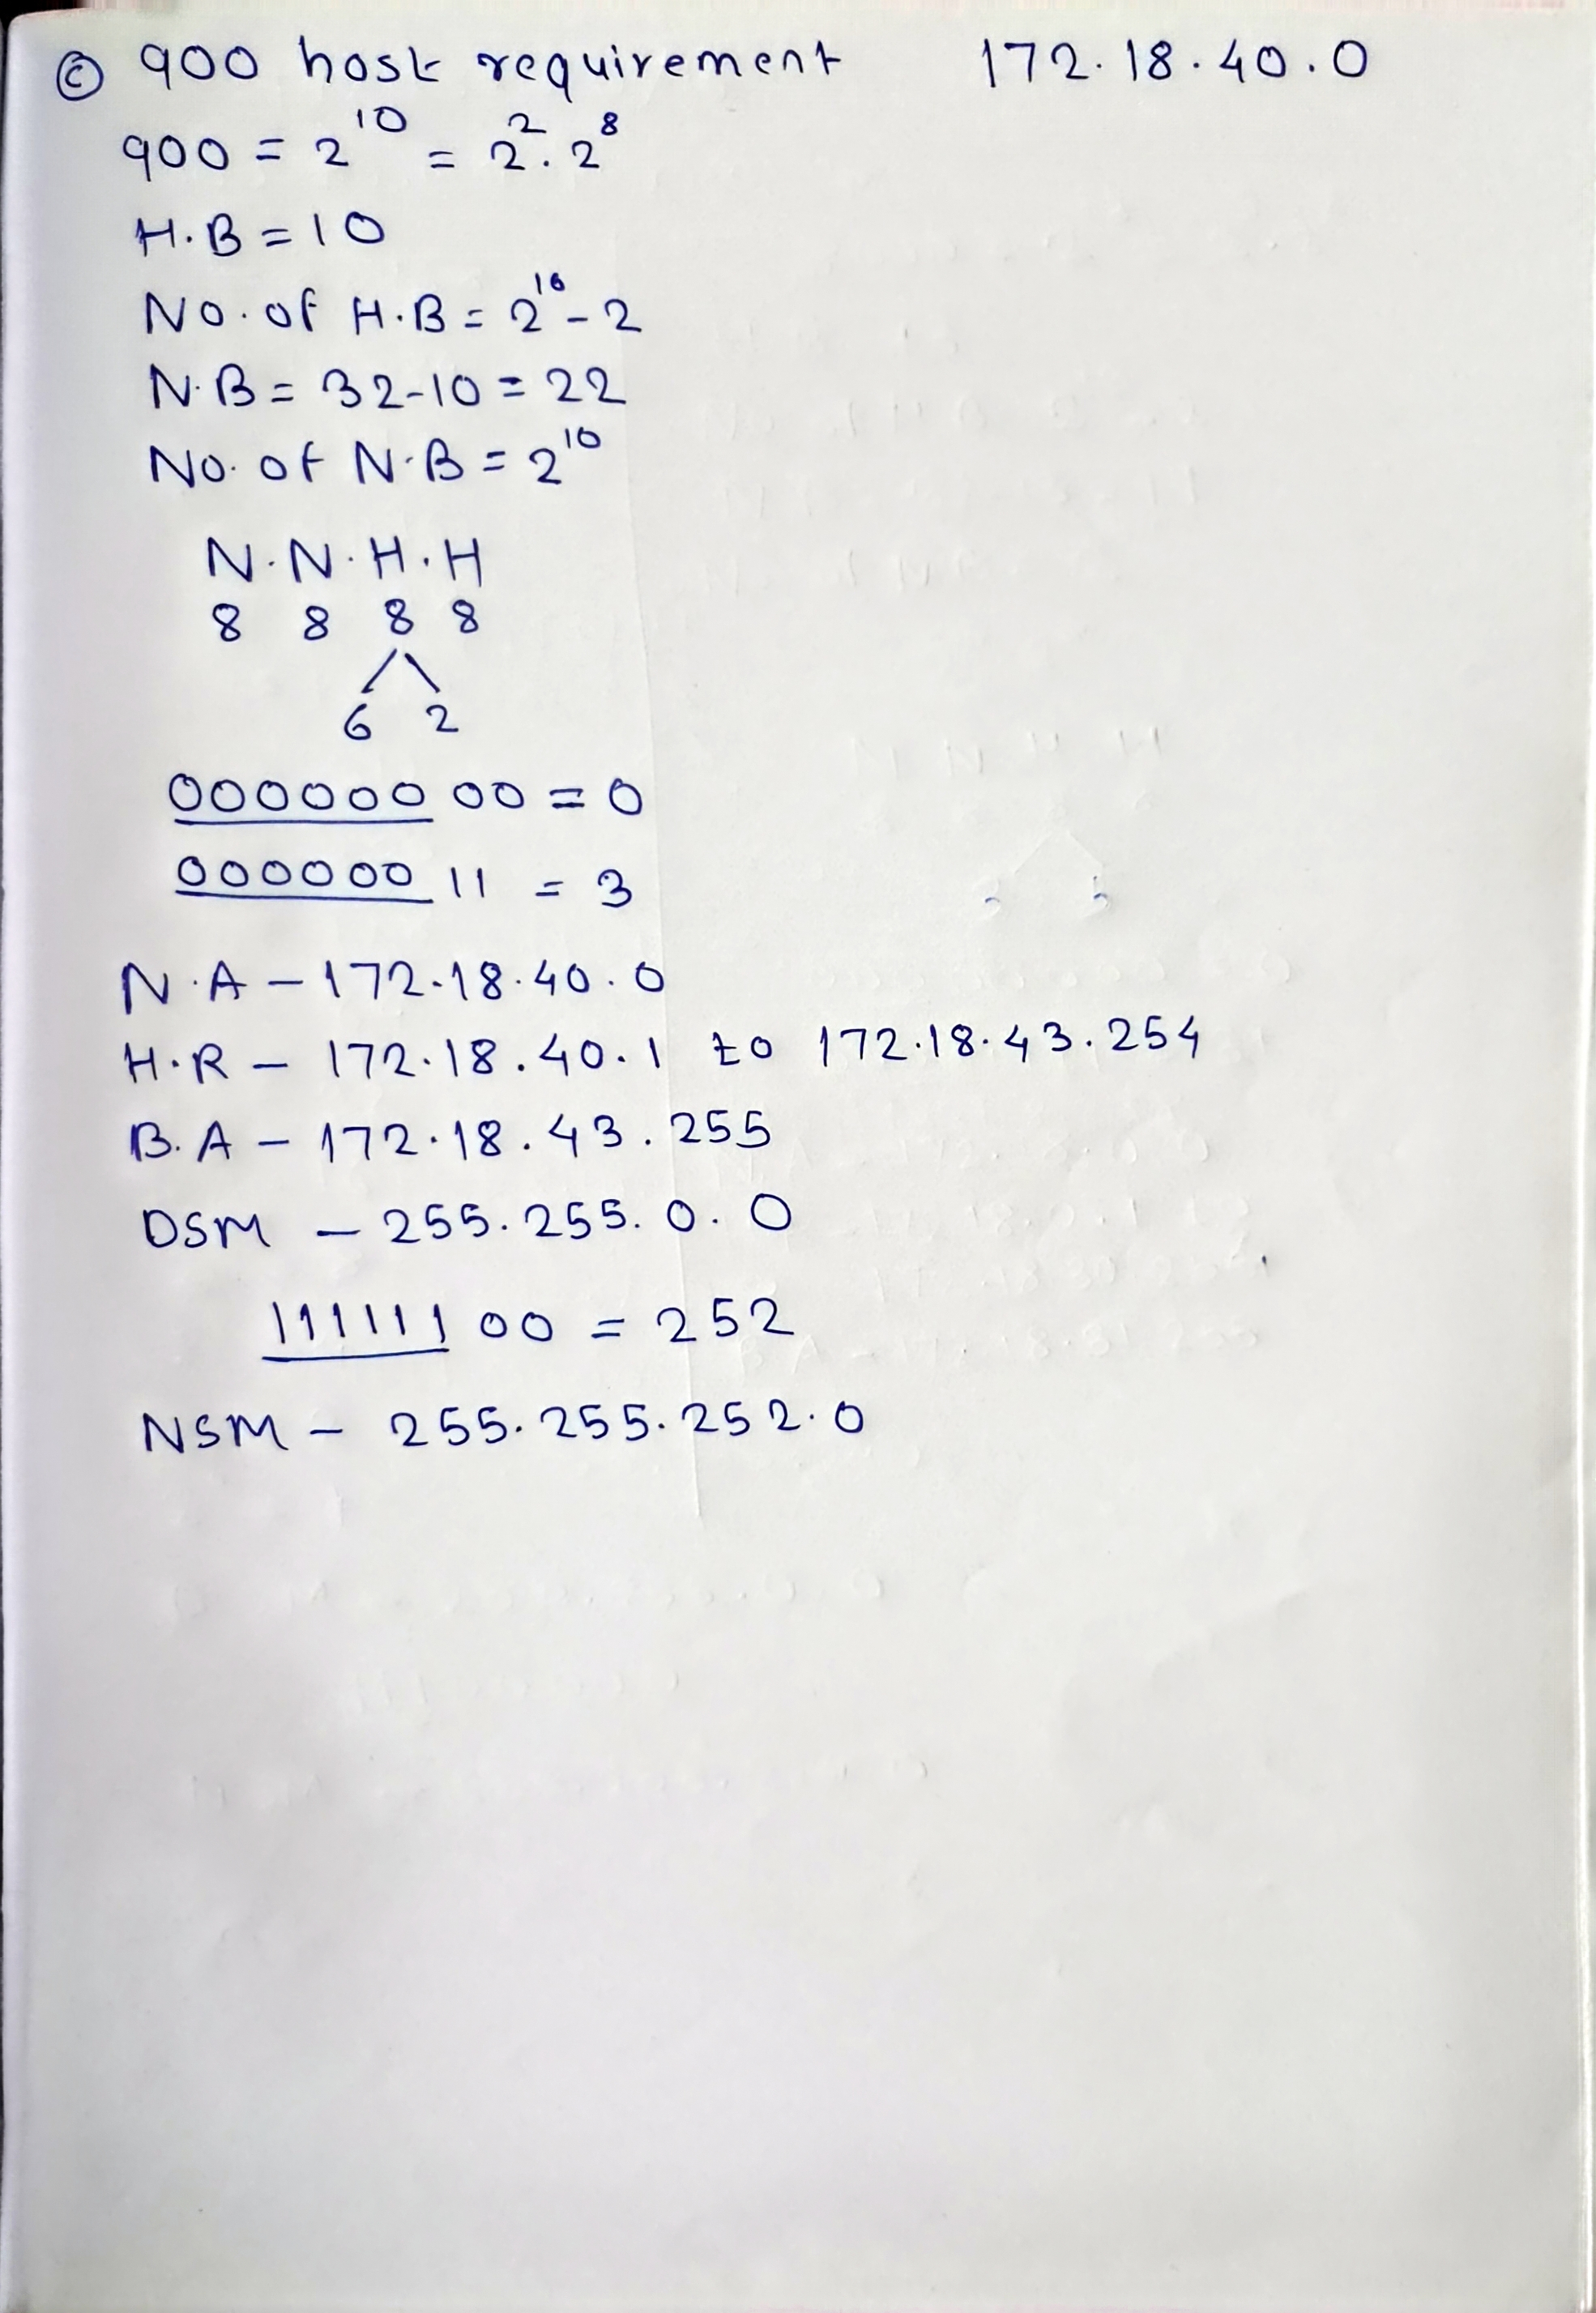 © 900 host requirement 172.18.40.0
900 = 2^10 = 2^2 . 2^8
H.B = 10
No. of H.B = 2^10 - 2
N.B = 32-10 = 22
No. of N.B = 2^10
N.N.H.H
8 8 8 8
6 2
000000 00 = 0
000000 11 = 3
N.A - 172.18.40.0
H.R - 172.18.40.1 to 172.18.43.254
B.A - 172.18.43.255
DSM - 255.255.0.0
111111 00 = 252
NSM - 255.255.252.0